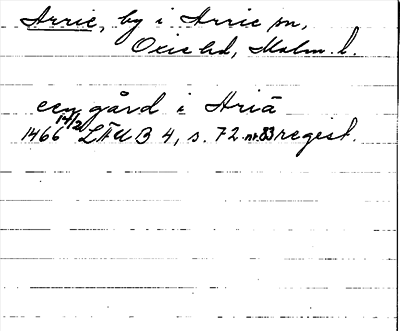 Arrie, by i Arrie sn,
Oxie hd, Malm. l.
een gård i Ariä
1466 14/2 LÄUB 4, s. 72 nr. 83 regest.